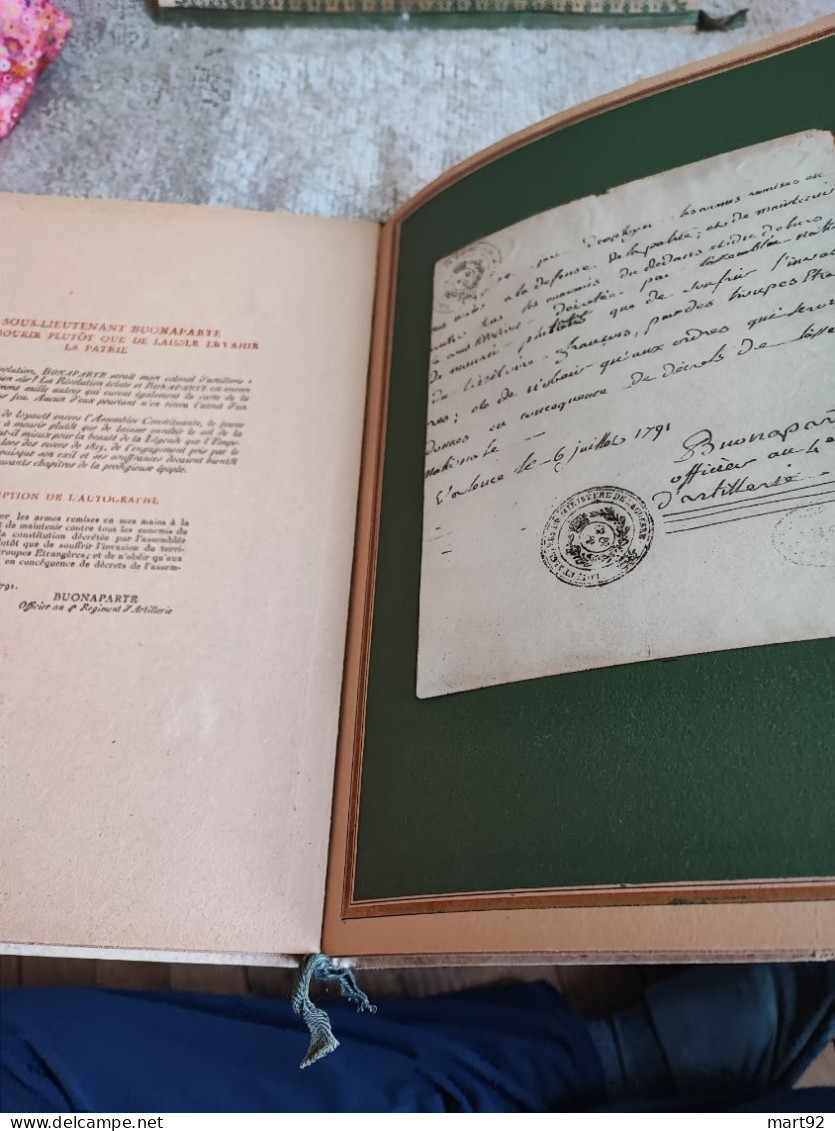 SOUS-LIEUTENANT BUONAPARTE
MOURIR PLUTÔT QUE DE LAISSER ENVAHIR
LA PATRIE
BUONAPARTE serait mort colonel d'artillerie
La Révolution éclate et BUONAPARTE en
mille autres qui eurent également la carte de la
feu. Aucun d'eux pourtant n'en tirera l'atout d'un
de loyauté envers l'Assemblée Constituante, le jeune
à mourir plutôt que de laisser envahir le sol de la
il mieux pour la beauté de la Légende que l'Empe-
lors des revers de 1815, de l'engagement pris par le
puisque son exil et ses souffrances devaient bientôt
chapitres de la prodigieuse épopée.
PTION DE L'AUTOGRAPHE
er les armes remises en mes mains à la
t de maintenir contre tous les ennemis du
la constitution décrétée par l'assemblée
lutôt que de souffrir l'invasion du terri-
roupes Etrangères; et de n'obéir qu'aux
en conséquence de décrets de l'assem-
791.
BUONAPARTE
Officier au 4e Regiment d'Artillerie
les armes remises en
mes mains a la defense de la patrie; et de maintenir
contre tous les ennemis du dedans et du dehors
par l'assemblée natio
de mourir plutot que de souffrir l'inva
du territoire français, par des troupes Etra
res; et de n'obeir qu'aux ordres qui seron
donnes en consequence de décrets de l'asse
nationale
Valence le 6 juillet 1791
Buonapart
officier au 4e
d'artillerie
mart92